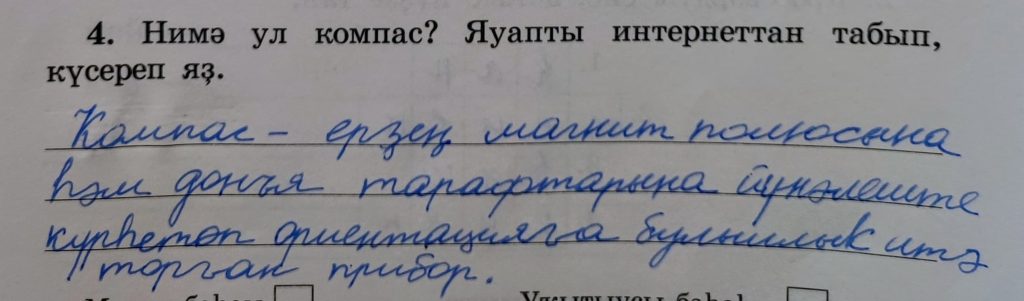 4. Нимә ул компас? Яуапты интернеттан табып,
күсереп яҙ.
Компас – ерҙең магнит полюсына
һәм донъя тарафтарына йүнәлеште
күрһәтеп ориентацияға булышлыҡ итә
торған прибор.